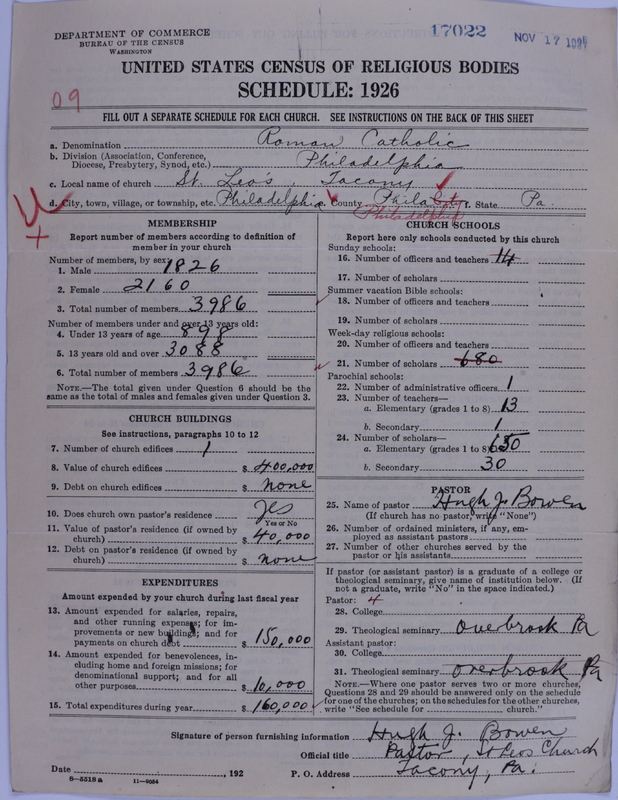 DEPARTMENT OF COMMERCE
BUREAU OF THE CENSUS
WASHINGTON
17022
NOV 17 192
UNITED STATES CENSUS OF RELIGIOUS BODIES
SCHEDULE: 1926
09
FILL OUT A SEPARATE SCHEDULE FOR EACH CHURCH. SEE INSTRUCTIONS ON THE BACK OF THIS SHEET
a. Denomination Roman Catholic
b. Division (Association, Conference, Diocese, Presbytery, Synod, etc.) Philadelphia
c. Local name of church St. Leo's Tacony
d. City, town, village, or township, etc. Philadelphia e. County Phila f. State Pa
Philadelphia
MEMBERSHIP
Report number of members according to definition of
member in your church
Number of members, by sex:
1. Male 1826
2. Female 2160
3. Total number of members 3986
Number of members under and over 13 years old:
4. Under 13 years of age 898
5. 13 years old and over 3088
6. Total number of members 3986
NOTE.—The total given under Question 6 should be the
same as the total of males and females given under Question 3.
CHURCH BUILDINGS
See instructions, paragraphs 10 to 12
7. Number of church edifices 1
8. Value of church edifices $ 400,000
9. Debt on church edifices $ none
10. Does church own pastor's residence yes
Yes or No
11. Value of pastor's residence (if owned by
church) $ 40,000
12. Debt on pastor's residence (if owned by
church) $ none
EXPENDITURES
Amount expended by your church during last fiscal year
13. Amount expended for salaries, repairs,
and other running expenses; for im-
provements or new buildings; and for
payments on church debt $ 150,000
14. Amount expended for benevolences, in-
cluding home and foreign missions; for
denominational support; and for all
other purposes $ 10,000
15. Total expenditures during year $ 160,000
CHURCH SCHOOLS
Report here only schools conducted by this church
Sunday schools:
16. Number of officers and teachers 14
17. Number of scholars
Summer vacation Bible schools:
18. Number of officers and teachers
19. Number of scholars
Week-day religious schools:
20. Number of officers and teachers
21. Number of scholars 680
Parochial schools:
22. Number of administrative officers 1
23. Number of teachers—
a. Elementary (grades 1 to 8) 13
b. Secondary 1
24. Number of scholars—
a. Elementary (grades 1 to 8) 650
b. Secondary 30
PASTOR
25. Name of pastor Hugh J. Bowen
(If church has no pastor, write "None")
26. Number of ordained ministers, if any, em-
ployed as assistant pastors
27. Number of other churches served by the
pastor or his assistants
If pastor (or assistant pastor) is a graduate of a college or
theological seminary, give name of institution below. (If
not a graduate, write "No" in the space indicated.)
Pastor: 4
28. College
29. Theological seminary Overbrook Pa
Assistant pastor:
30. College
31. Theological seminary Overbrook Pa
NOTE.—Where one pastor serves two or more churches,
Questions 28 and 29 should be answered only on the schedule
for one of the churches; on the schedules for the other churches,
write "See schedule for church."
Signature of person furnishing information Hugh J. Bowen
Official title Pastor, St Leos Church
Date , 192 P. O. Address Tacony, Pa.
8—5518 a 11—9054